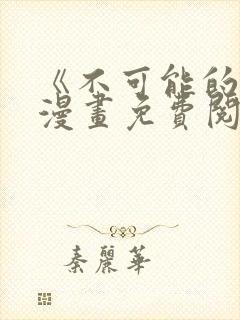 《不可能的
漫畫免費閱
秦麗華